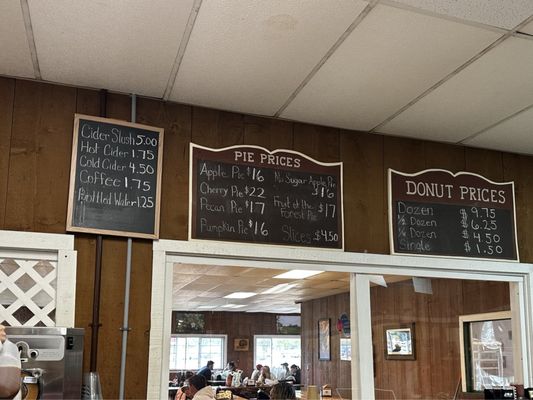 Cider Slush 5.00
Hot Cider 1.75
Cold Cider 4.50
Coffee 1.75
Bottled Water 1.25
PIE PRICES
Apple Pie $16
Cherry Pie $22
Pecan Pie $17
Pumpkin Pie $16
No Sugar Apple Pie
$16
Fruit of the
Forest Pie $17
Slices $4.50
DONUT PRICES
Dozen $9.75
½ Dozen $6.25
Dozen $4.50
Single $1.50